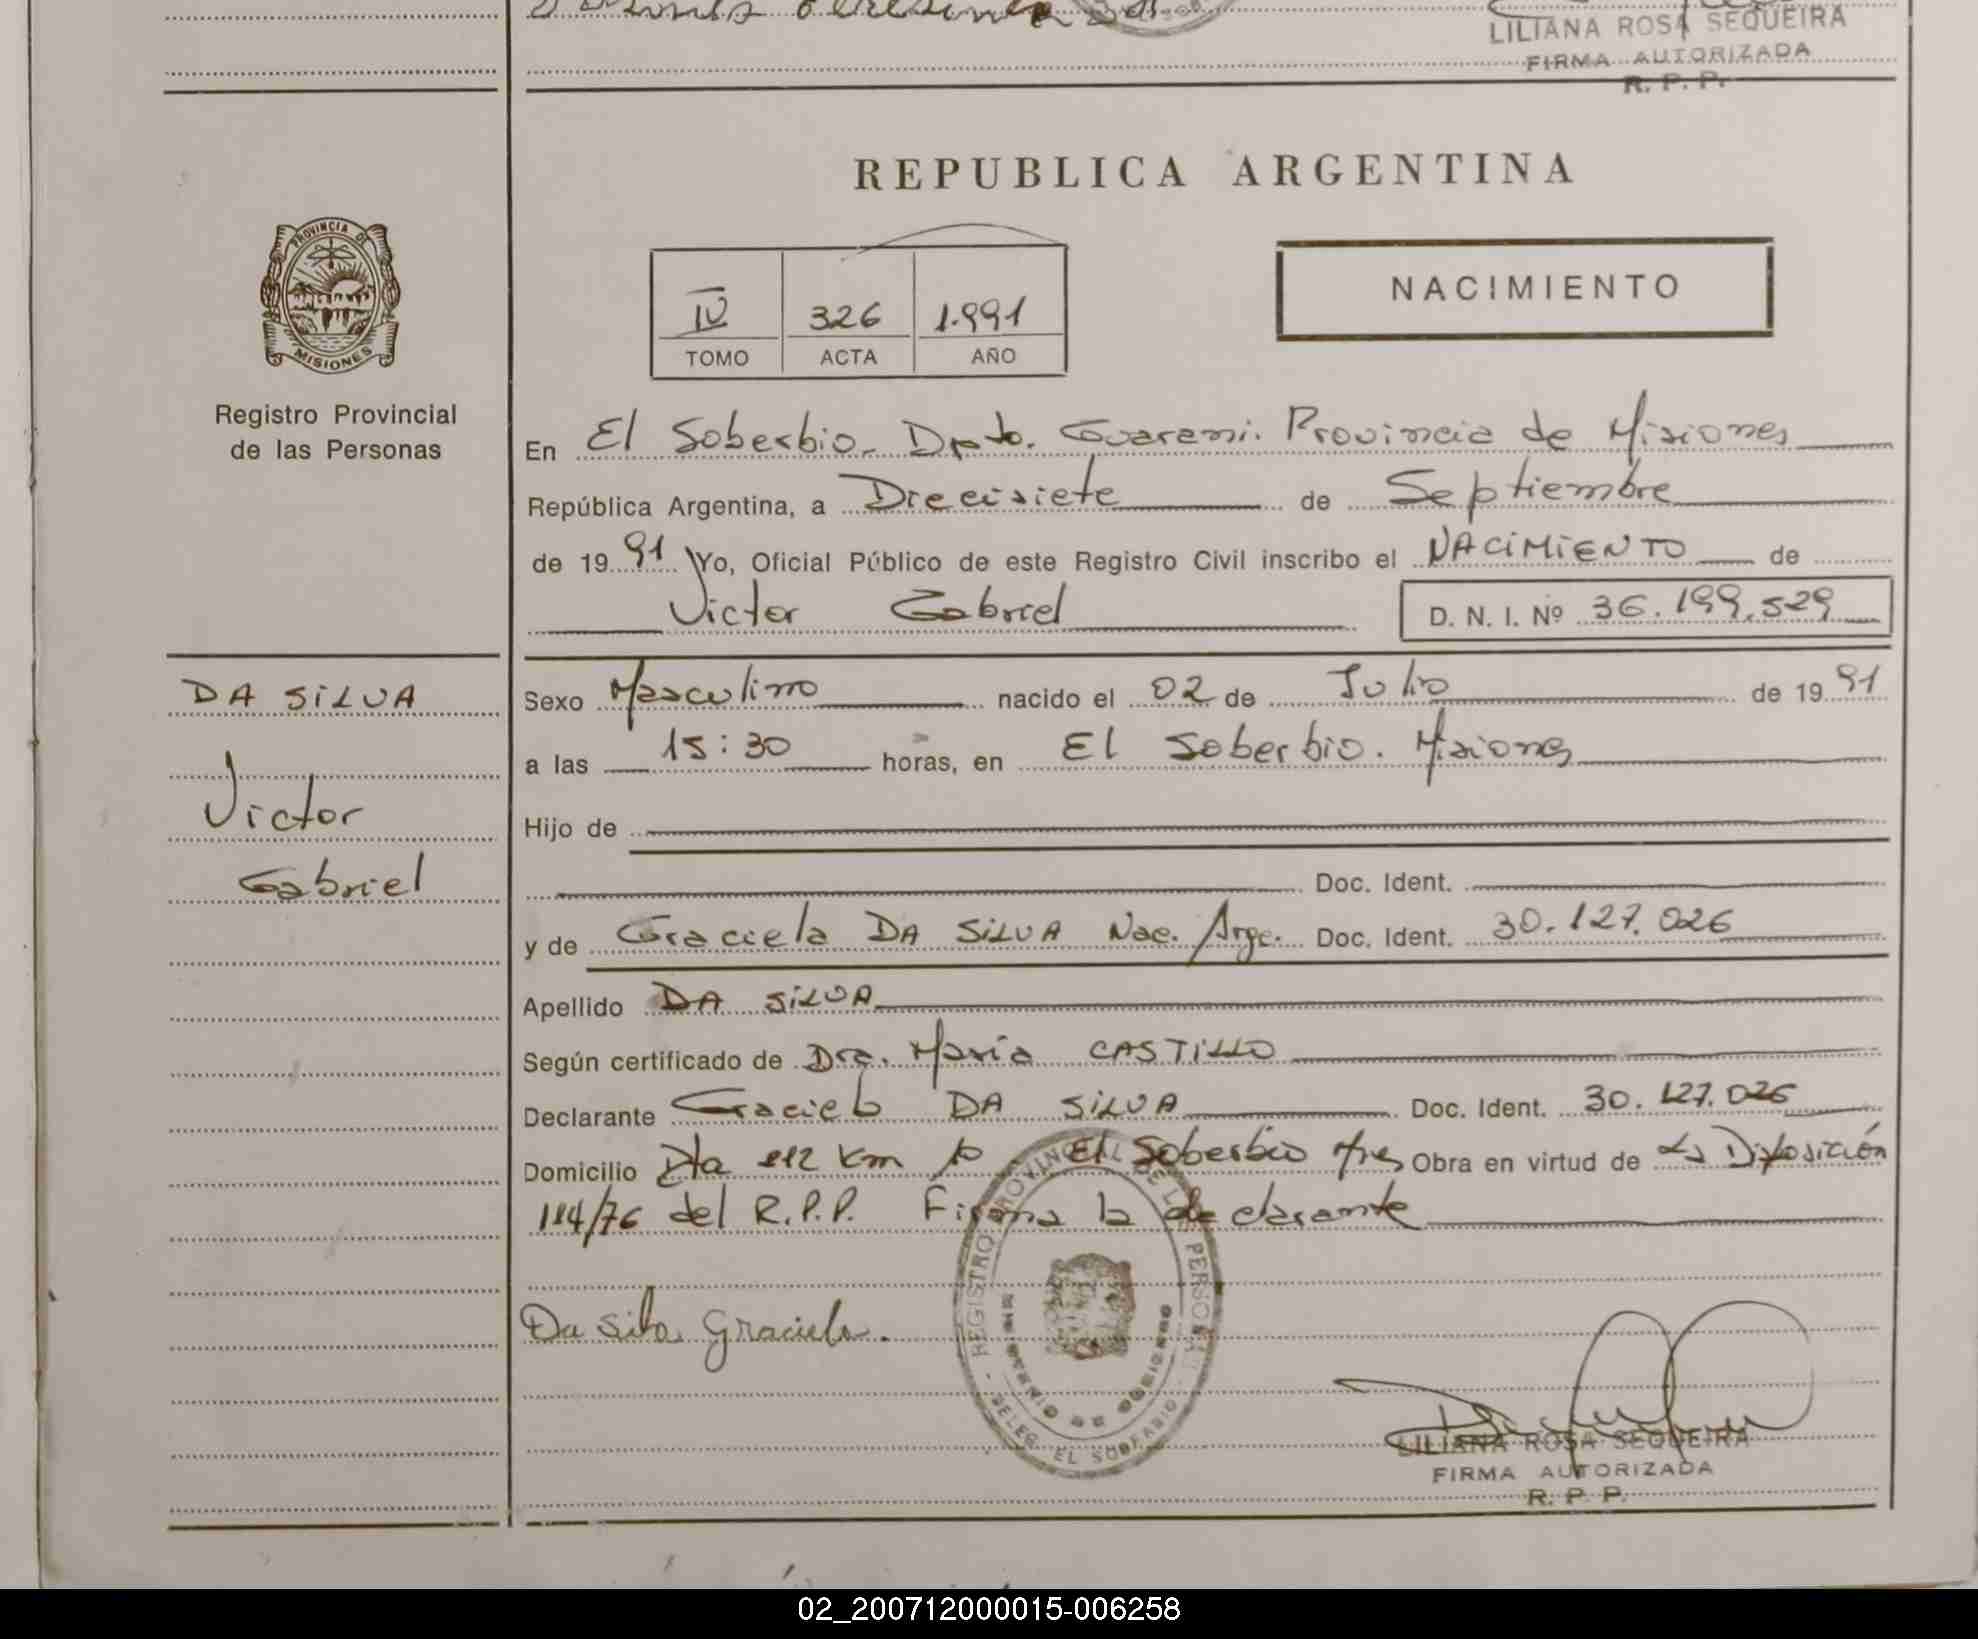 LILIANA ROSA SEQUEIRA
FIRMA AUTORIZADA
R. P. P.
REPUBLICA ARGENTINA
PROVINCIA DE
MISIONES
Registro Provincial
de las Personas
IV 326 1.991
TOMO ACTA AÑO
NACIMIENTO
En El Soberbio. Dpto. Guarani. Provincia de Misiones
República Argentina, a Diecisiete de Septiembre
de 19 91 Yo, Oficial Público de este Registro Civil inscribo el NACIMIENTO de
Victor Gabriel D. N. I. Nº 36.199.529
DA SILVA
Victor
Gabriel
Sexo Masculino nacido el 02 de Julio de 19 91
a las 15:30 horas, en El Soberbio. Misiones
Hijo de
Doc. Ident.
y de Graciela DA SILVA Nac. Arge. Doc. Ident. 30.127.026
Apellido DA SILVA
Según certificado de Dra. María CASTILLO
Declarante Graciela DA SILVA Doc. Ident. 30.127.026
Domicilio Rta 212 Km 10 El Soberbio Mnes Obra en virtud de La Disposición
114/76 del R.P.P. Firma la declarante
Da Silva Graciela.
REGISTRO PROVINCIAL DE LAS PERSONAS
MINISTERIO DE GOBIERNO
DELEG. EL SOBERBIO
LILIANA ROSA SEQUEIRA
FIRMA AUTORIZADA
R. P. P.
02_200712000015-006258